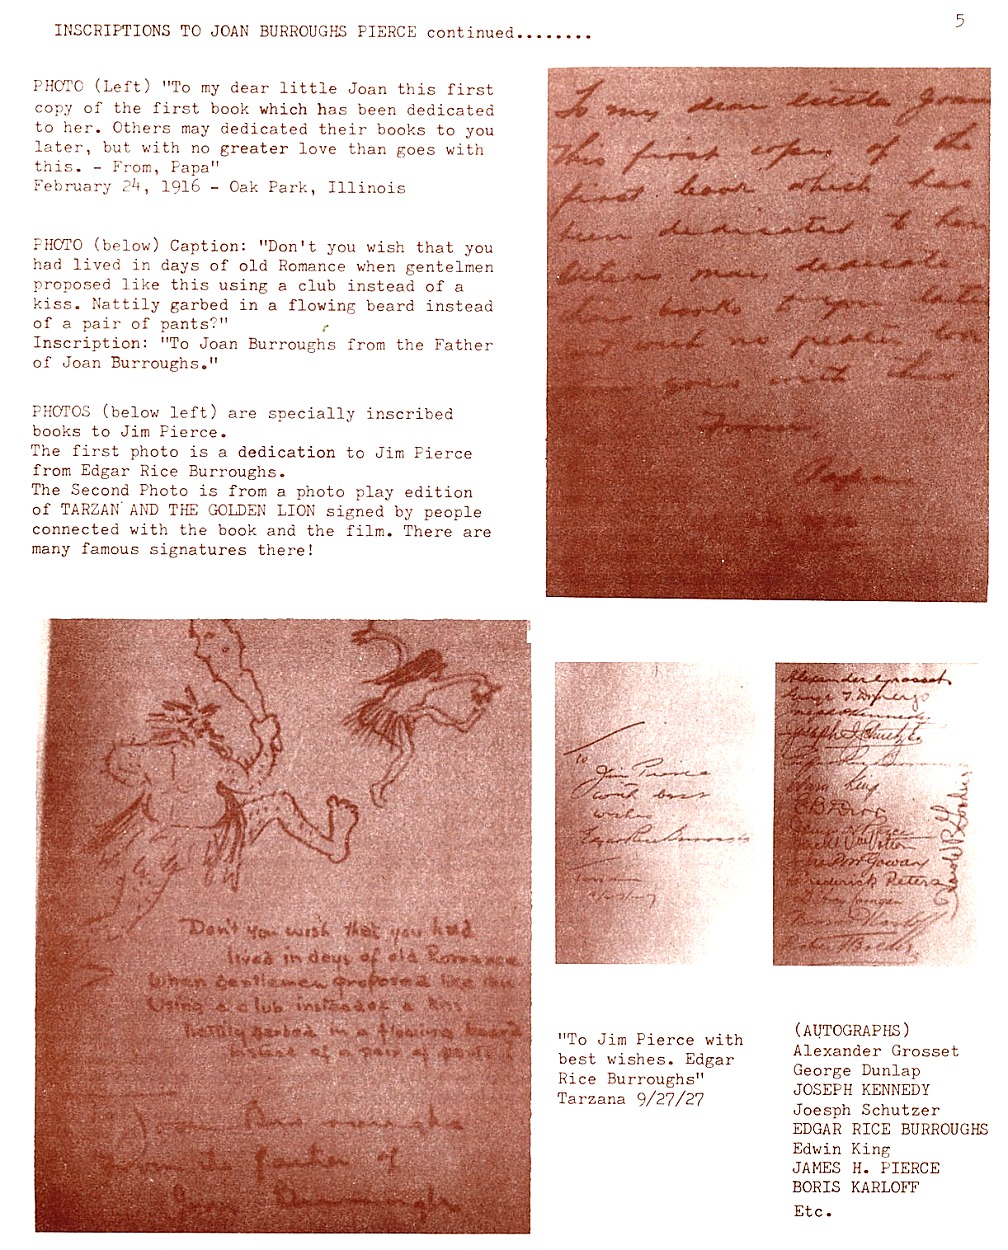 INSCRIPTIONS TO JOAN BURROUGHS PIERCE continued........
5
PHOTO (Left) "To my dear little Joan this first
copy of the first book which has been dedicated
to her. Others may dedicated their books to you
later, but with no greater love than goes with
this. - From, Papa"
February 24, 1916 - Oak Park, Illinois
PHOTO (below) Caption: "Don't you wish that you
had lived in days of old Romance when gentelmen
proposed like this using a club instead of a
kiss. Nattily garbed in a flowing beard instead
of a pair of pants?"
Inscription: "To Joan Burroughs from the Father
of Joan Burroughs."
PHOTOS (below left) are specially inscribed
books to Jim Pierce.
The first photo is a dedication to Jim Pierce
from Edgar Rice Burroughs.
The Second Photo is from a photo play edition
of TARZAN AND THE GOLDEN LION signed by people
connected with the book and the film. There are
many famous signatures there!
To my dear little Joan
this first copy of the
first book which has
been dedicated to her.
Others may dedicate
their books to you later
but with no greater love
goes with this
From,
Papa
Don't you wish that you had
lived in days of old Romance
When gentlemen proposed like this
Using a club instead of a kiss
Nattily garbed in a flowing beard
Instead of a pair of pants
Joan Burroughs
from the father of
Joan Burroughs
To
Jim Pierce
with best
wishes
Edgar Rice Burroughs
Alexander Grosset
Joseph I Schnitzer
King
Frederick Peters
"To Jim Pierce with
best wishes. Edgar
Rice Burroughs"
Tarzana 9/27/27
(AUTOGRAPHS)
Alexander Grosset
George Dunlap
JOSEPH KENNEDY
Joesph Schutzer
EDGAR RICE BURROUGHS
Edwin King
JAMES H. PIERCE
BORIS KARLOFF
Etc.